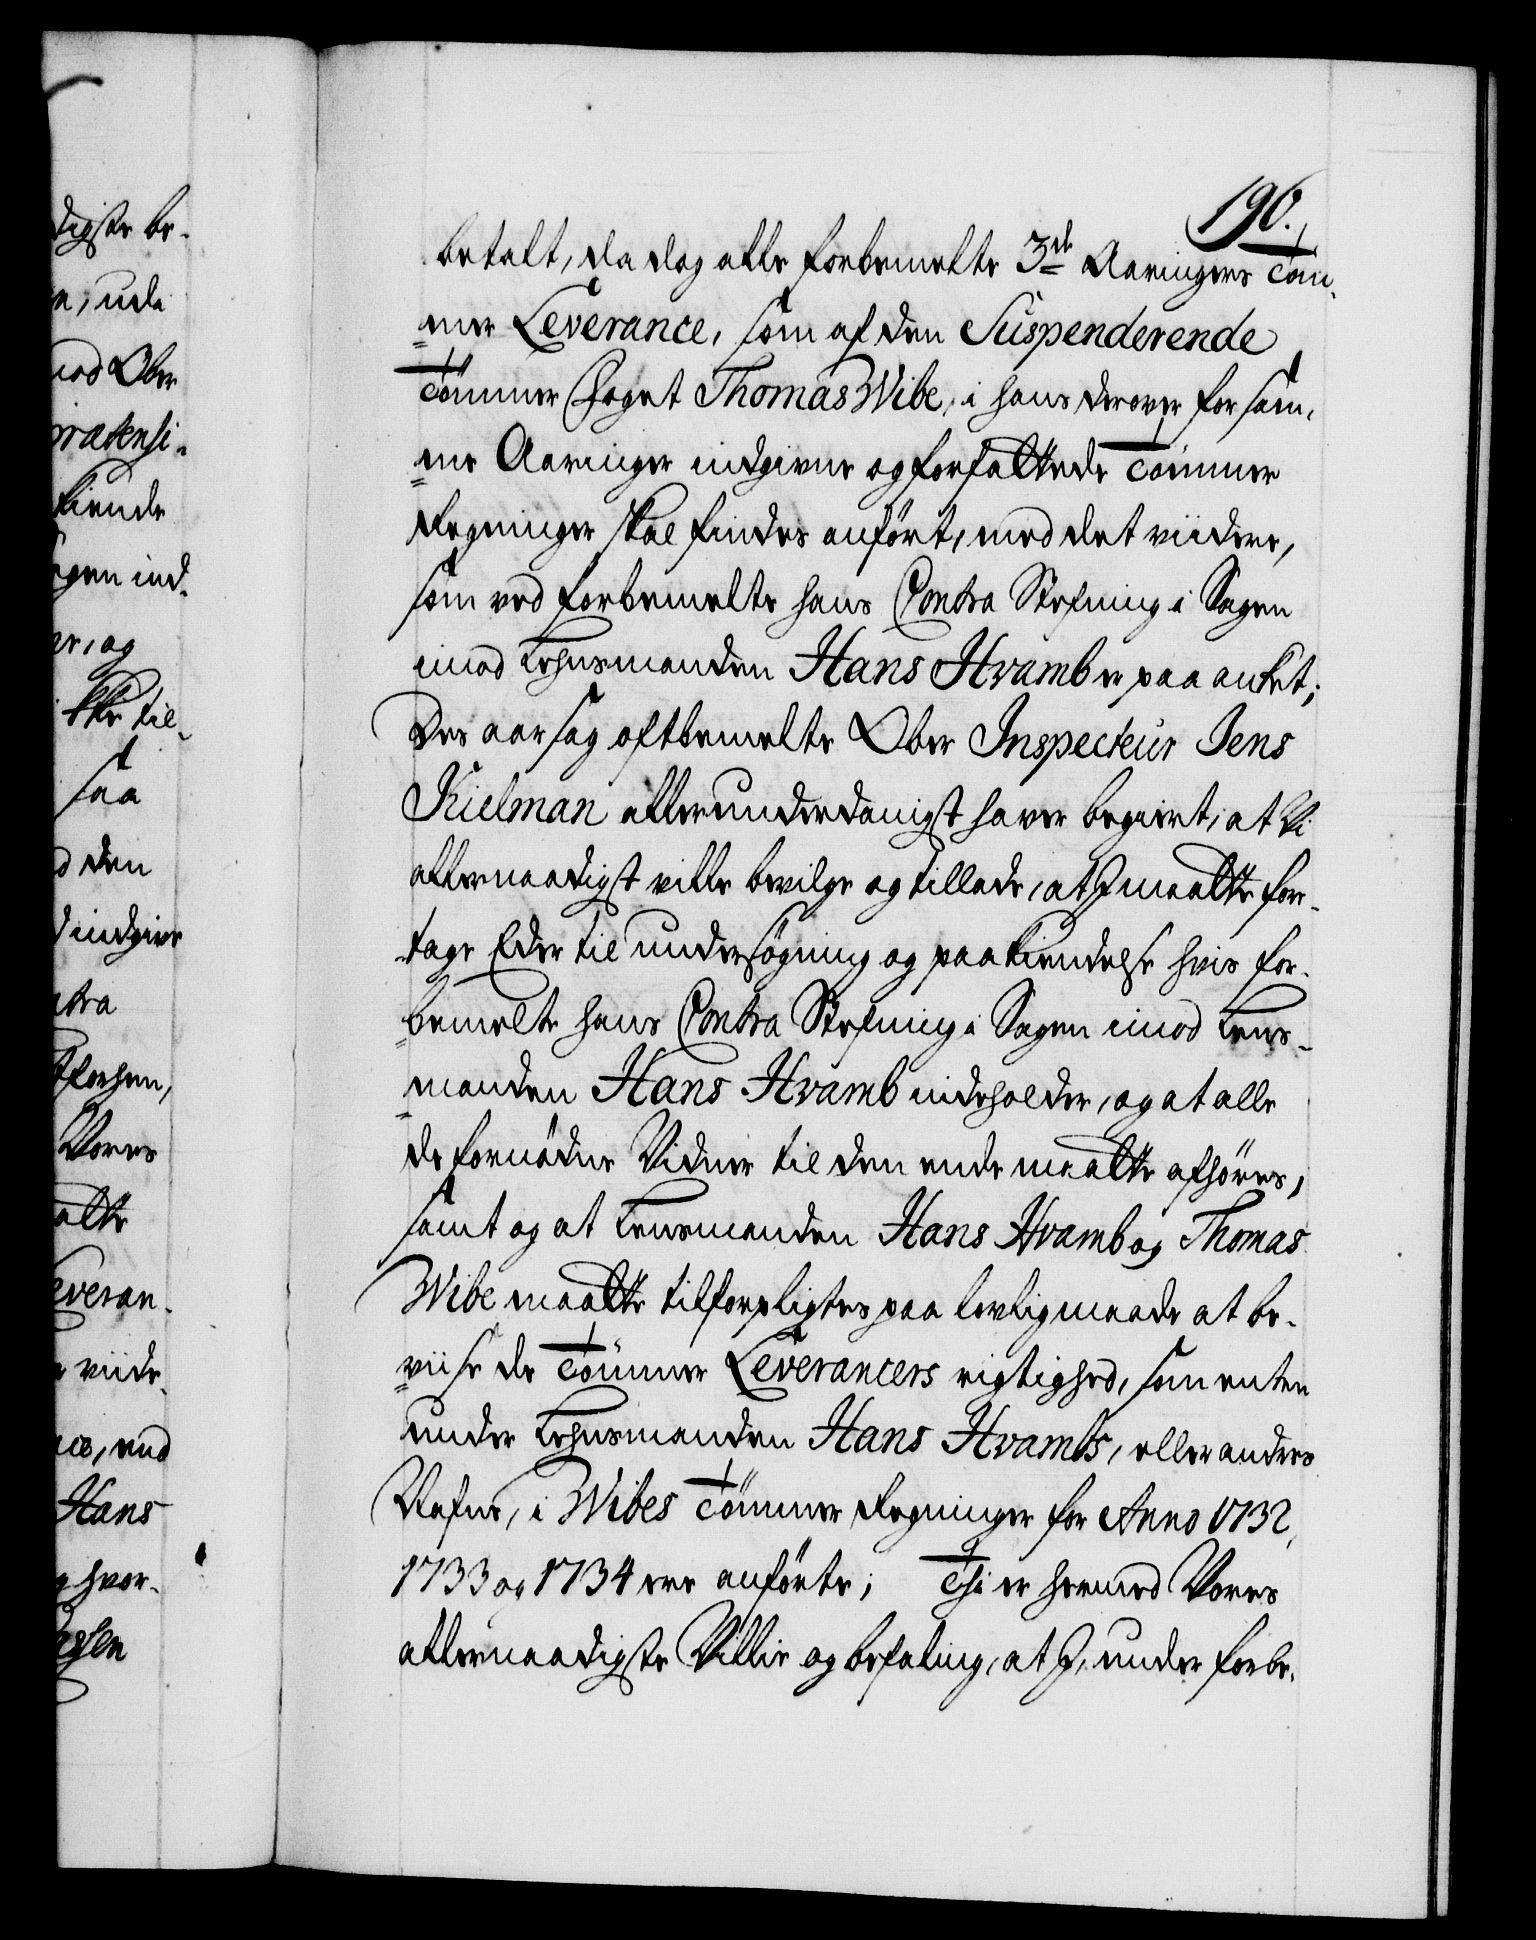 190.
betalt, da dog alle forbemelte 3de Aaringers Töm-
mer Leverance, som af den Suspenderende
Tömmer Foget Thomas Wibe, i hans derover for sam-
me Aaringer indgivne og forfattede Tömmer
Regninger skal findes anfört, med det viidere,
som ved forbemelte hans Contra Stefning i Sagen
imod Lehnsmanden Hans Hvamb er paa anket;
Des aarsag oftbemelte Ober Inspecteur Jens
Kielman allerunderdanigst haver begiert, at Vi
allernaadigst ville bevilge og tillade, at I maatte for-
tage Eder til undersögning og paakiendelse hvis for-
bemelte hans Contra Stefning i Sagen imod Lens-
manden Hans Hvamb indeholder, og at alle
de fornödne Vidner til den ende maatte afhöres,
samt og at Lensmanden Hans Hvamb og Thomas
Wibe maatte tilforpligtes paa lovlig maade at be-
viise de Tömmer Leverancers rigtighed, som enten
under Lehnsmanden Hans Hvambs, eller andres
Nafne, i Wibes Tömmer Regninger for Anno 1732,
1733 og 1734 ere anförte; Thi er hermed Vores
allernaadigste Villie og befaling, at I, under forbe-
digste be-
, uda
Ober
kiende
ind-
, og
til-
saa
den
indgive
forhen,
Vores
viide-
Hans
hvor-